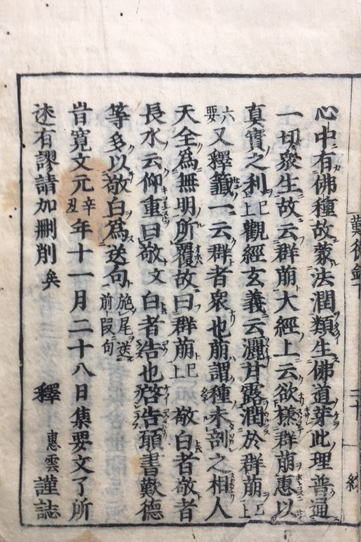 心中有佛種故蒙法潤類生佛道芽此理普通
一切衆生故云群萠大經上云欲拯群萠惠以
眞實之利已上觀經玄義云灑甘露潤於群萠已上
六要又釋籤一云群者衆也萠謂種未剖之相人
天全爲無明所覆故曰群萠已上敬白者敬者
長水云仰重曰敬文白者告也啓告顚書歎德
等多以敬白爲送句施尾送前段句
旹寛文元辛丑年十一月二十八日集要文了所
迷有謬請加刪削矣 釋惠雲謹誌